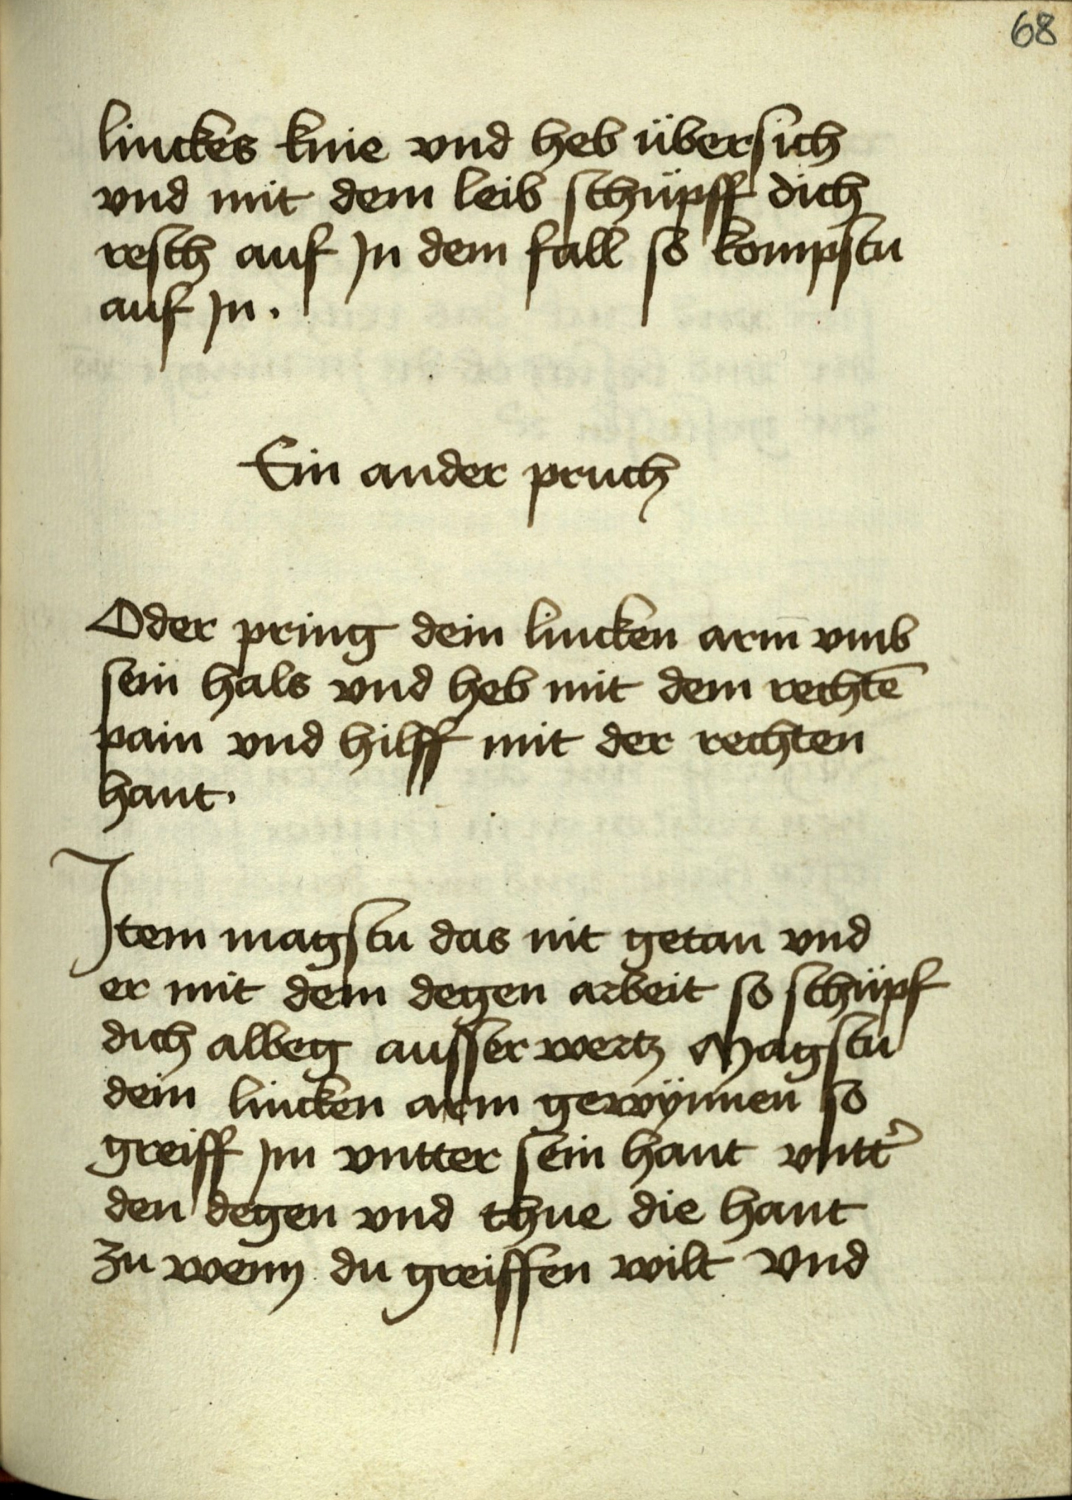 68
linckes knie vnd heb übersich
vnd mit dem leib schüpff dich
resch auf Jn dem fall so kompstu
auf Jn.
Ein ander pruch
Oder pring dein lincken arm̄ vmb
sein hals vnd heb mit dem rechtē
pain vnd hilff mit der rechten
hant.
Jtem magstu das nit getan vnd
er mit dem degen arbeit so schüpf
dich albeg ausser wertz Magstu
dein lincken arm gewÿnnen so
greiff Jm vntter sein hant vntt᾽
den degen vnd thue die hant
zu wenn du greiffen wilt vnd